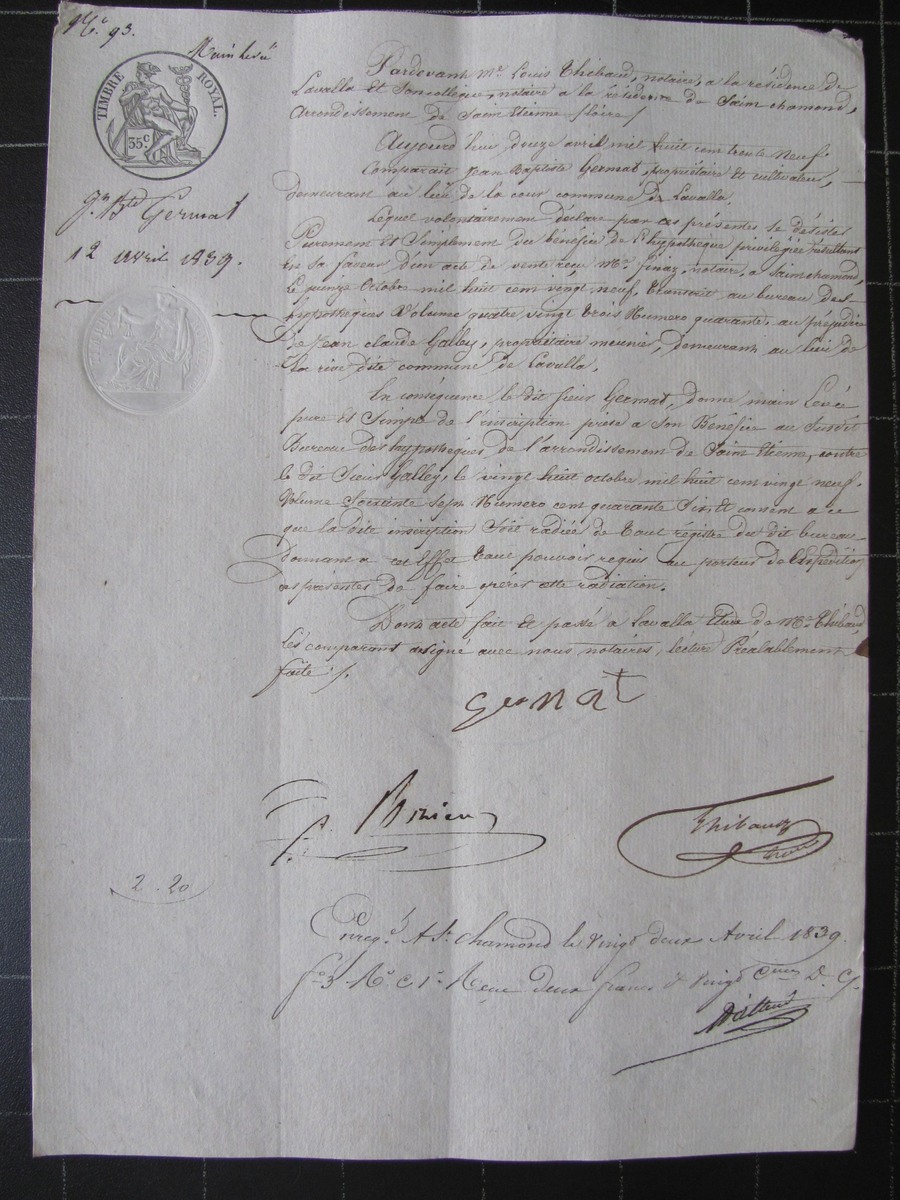 N.° 93.
Main levée
TIMBRE ROYAL.
35 c
Jn Bte Germat
12 avril 1839.
Pardevant Me Louis Thibaud, notaire, a la résidence de
Lavalla et Son collègue, notaire a la résidence de Saint chamond,
Arrondissement de Saint Etienne (Loire)
Aujourd'hui douze avril mil huit cent trente neuf.
Comparait Jean Baptiste Germat, propriétaire et cultivateur,
demeurant au lieu de la cour commune de Lavalla.
Lequel volontairement déclare par ces présentes se désister
Purement et Simplement du bénéfice de l'hypothèque privilégiée résultant
en sa faveur d'un acte de vente reçu Me Finaz, notaire, a saint chamond,
Le quinze Octobre mil huit cent vingt neuf, transcrit au bureau des
hypothèques Volume quatre vingt trois Numero quarante, au préjudice
de Jean claude Galley, propriétaire meunier, demeurant au lieu de
La rive dite commune de Lavalla.
En conséquence le dit sieur Germat, donne main Levée
pure et Simple de l'inscription prise a Son Bénéfice au Susdit
Bureau des hypothèques de l'arrondissement de Saint Etienne, contre
le dit Sieur Galley, le vingt huit octobre mil huit cent vingt neuf.
Volume Soixante sept Numero cent quarante Six, et consent a ce
que la dite inscription Soit radiée de tout régistre du dit bureau
Donnant a cet Effet tout pouvoir requis au porteur de l'expédition
des présentes de faire opérer cette radiation.
Dont acte fait et passé à Lavalla Etude de Me Thibaud,
Les comparant designé avec nous notaires, lecture Préalablement
faite /.
Germat
Thibaud
2 . 20
Enregé A St. chamond le vingt deux Avril 1839.
fo 3 Ro C 1re Reçu deux francs & vingt Cmes D. C/.